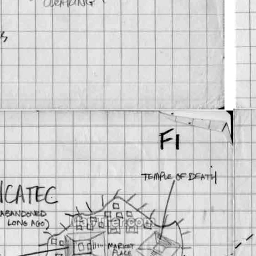 CLEARING
FI
TEMPLE OF DEATH
ICATEC
(ABANDONED
LONG AGO)
MARKET
PLACE